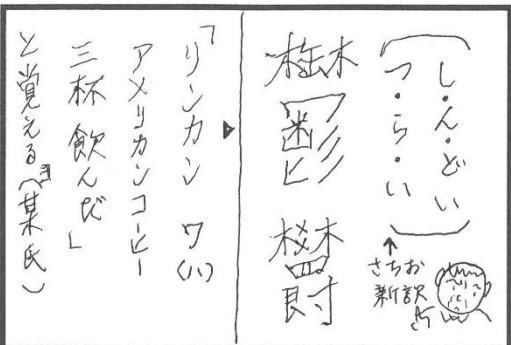 (し・ん・ど・い
つ・ら・い)
↑
さちお
新訳
鬱
「リンカン ワ(ハ)
アメリカンコーヒー
三杯飲んだ」
と覚える(某氏)